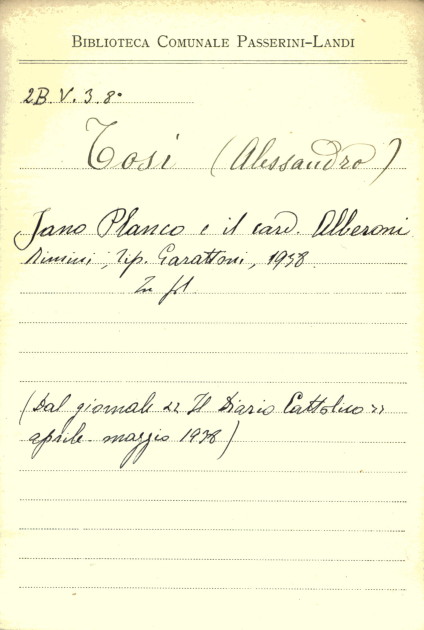 BIBLIOTECA COMUNALE PASSERINI-LANDI
2B.V.3.8°
Tosi (Alessandro)
Jano Planco e il card. Alberoni
Rimini, Tip. Garattoni, 1938.
In fol
(Dal giornale << Il Diario Cattolico >>
aprile - maggio 1938)